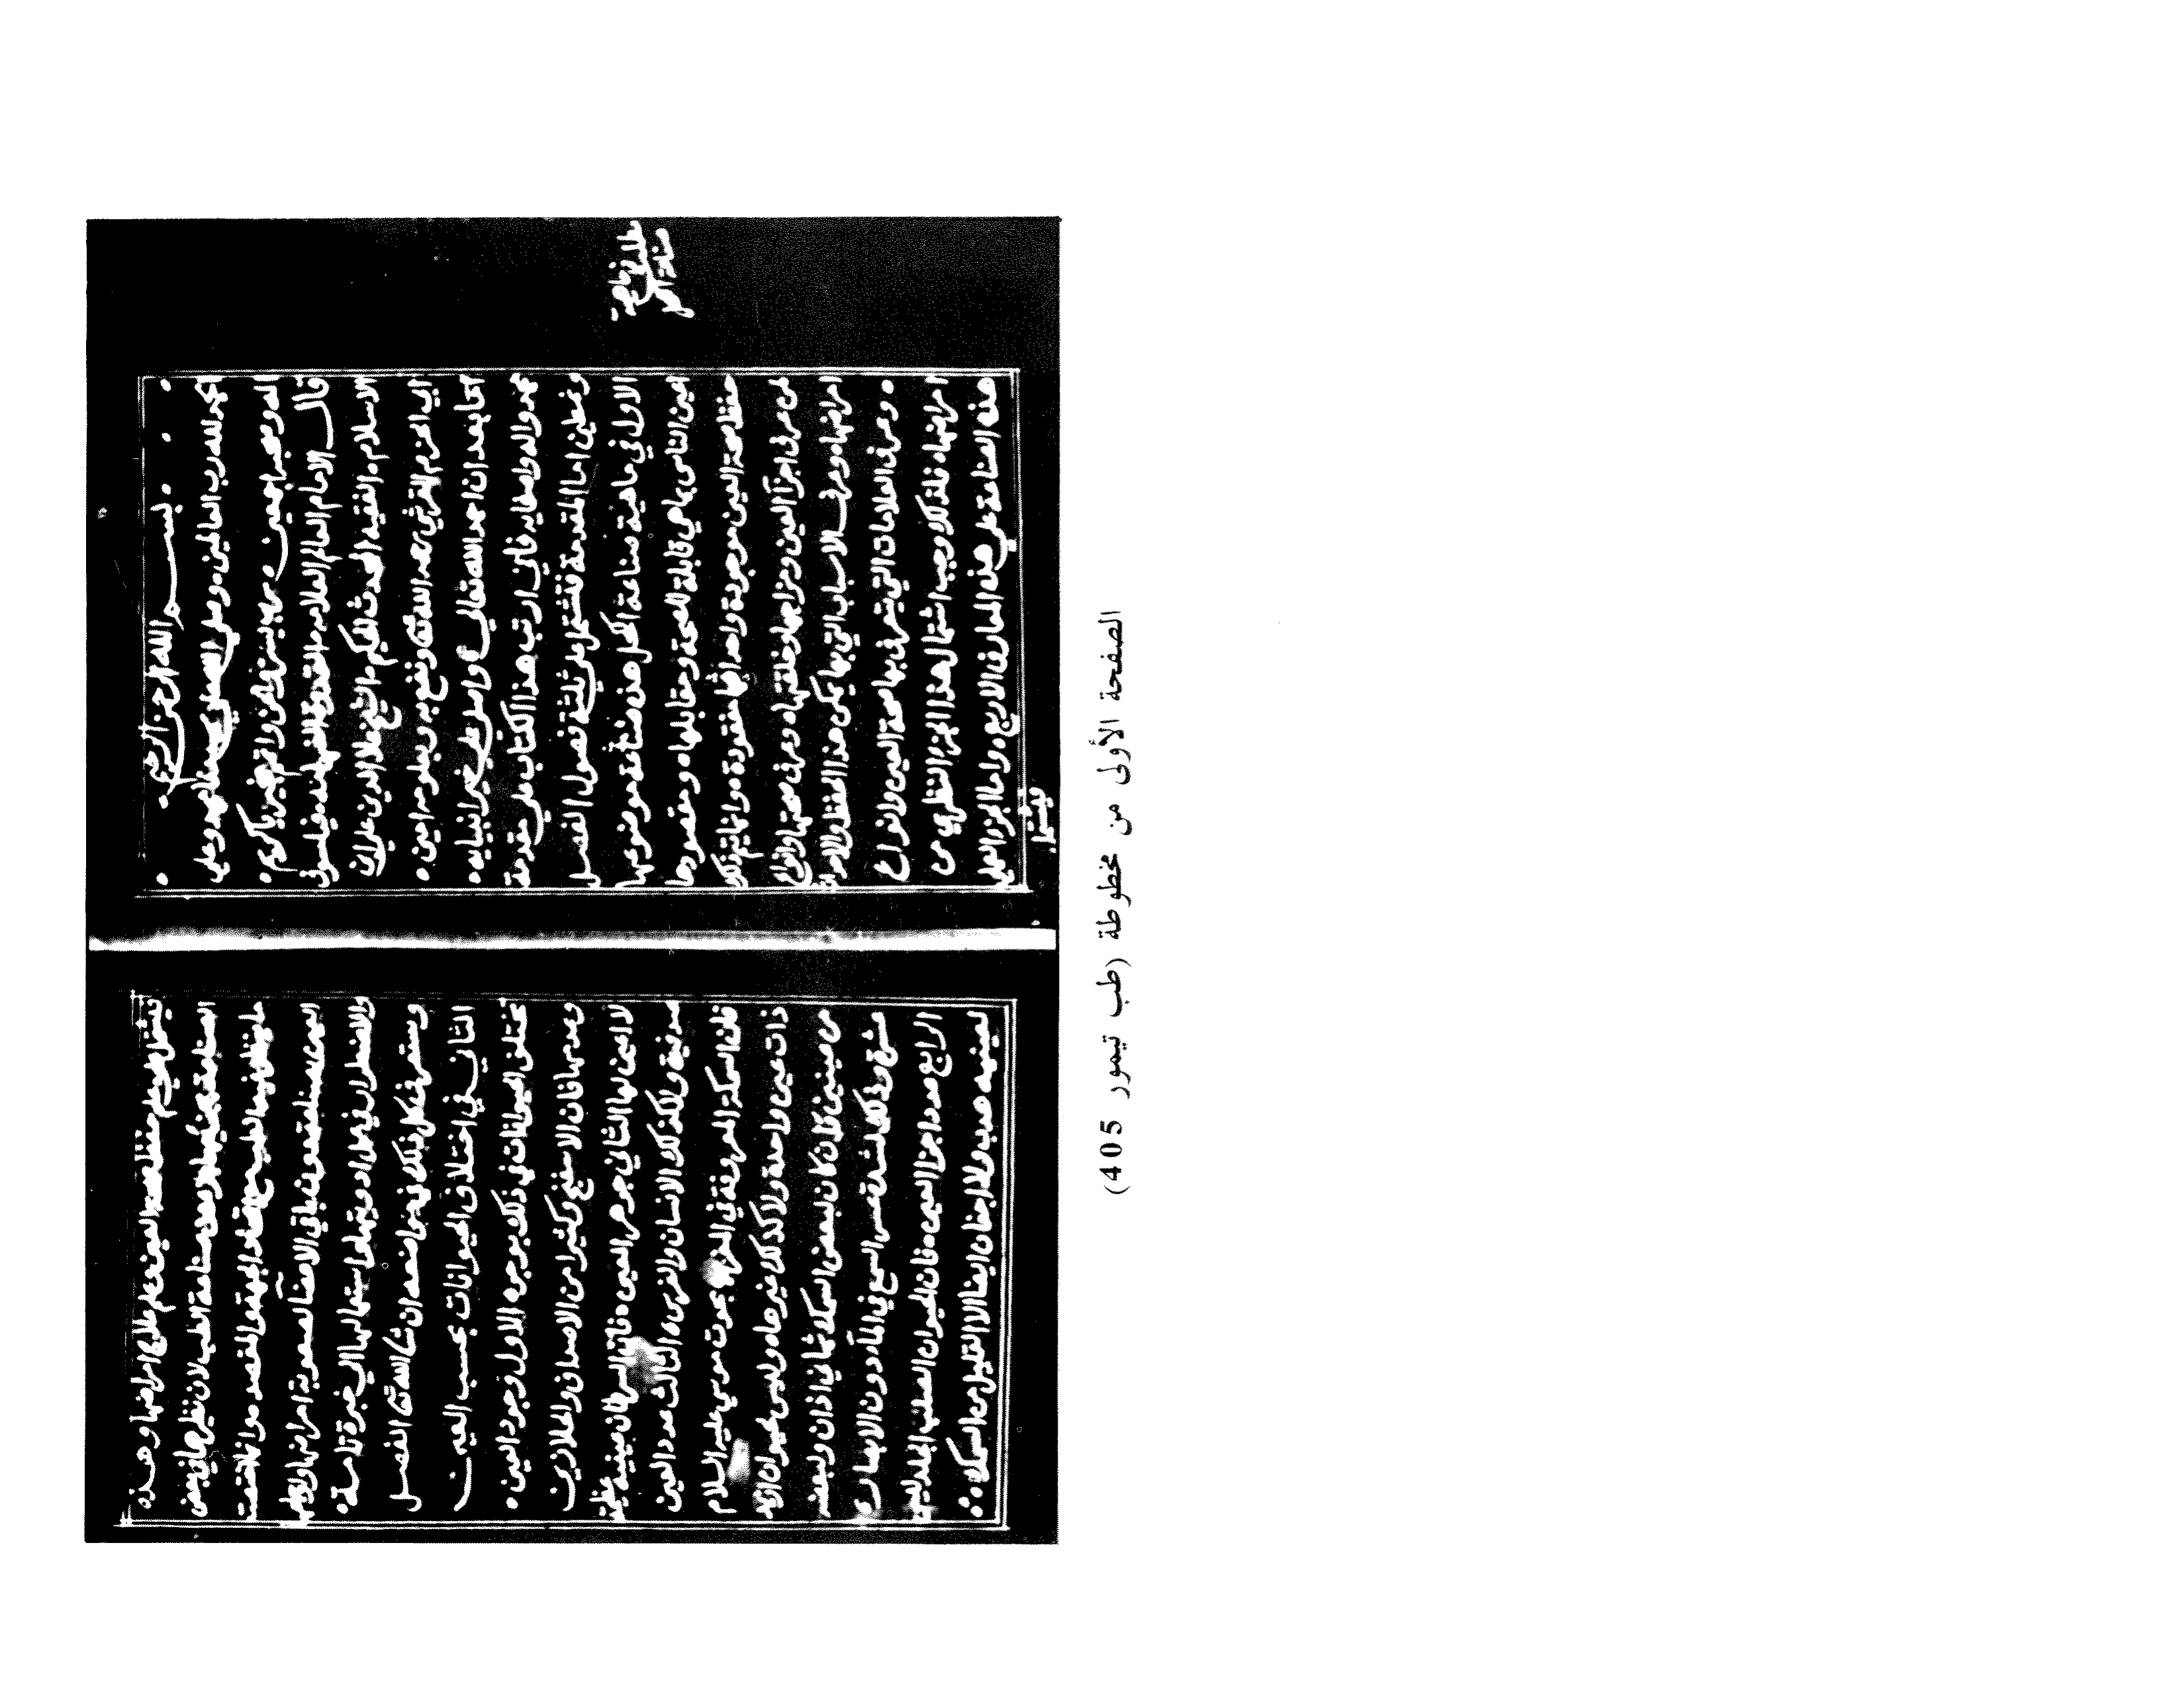 بسم الله الرحمن الرحيم
الحمد لله رب العالمين وصلى الله على سيدنا محمد وعلى
اله وصحبه اجمعين رب يسر واعن واتمم بخير يا كريم
قال الامام العالم العلامه
الاسلام الفقيه المحدث الحكيم الشيخ علا الدين على ابن
ابي الحزم القرشي رحمه الله تعالى ونفع به وبعلومه امين
اما بعد ان احمد الله تعالى واصلي على خير انبيايه
محمد واله واصحابه فاني ارتب هذا الكتاب على مقدمة
ونمطين اما المقدمة فتشتمل على ثلثة فصول الفصل
الاول في ماهية صناعة الكحل هذه صناعة موضوعها
عين الناس بما هي قابلة للصحة ومقابلها ومقصودها
حفظ صحة العين موجودة وافادتها مفقودة وانما يتم ذلك
من عرف اجزآ العين ومزاجها وخلقتها وعرف صحتها وانواع
امراضها وعرف الاسباب التي بها يمكن هذا الحفظ والافادة
وعرف العلامات التي يتعرف بها صحة العين وانواع
امراضها فلذلك وجب اشتمال هذا الجزء النظري من
هذه الصناعة على هذه المعارف الاربع واما الجزء العملي
فيشتمل
يشتمل على علم حفظ صحة العين وعلم علاج امراضها وهذه
الصناعة صناعة الطب لان نظرها في بعض
ما ينظر فيه الطبيب
العين صناعة دون باقي الاعضآ لصعوبة امراضها
والاضطرار في علاجها استعمالها الى خبرة تامة
وستعرف كل ذلك فيما بعد ان شا الله تعالى الفصل
الثاني في اختلاف الحيوانات بحسب العين
تختلف الحيوانات في ذلك بوجوه الاول وجود العين
وعدمها فان الاسفنج وكثيرا من الاصداف والحلازين
لا اعين لها الثاني جوهر العين فان السرطان عينيه
صدفية ولا كذلك الانسان والفرس الثالث عدد العين
فان السمكة المعروفة بحوت موسى عليه السلام
ذات عين واحدة ولا كذلك غيرها وليس لحيوان اكثر
من عينين وان كان لبعض السمك ثماني اذان ولبعضه
الرابع عدد اجزا العين فان الحيوان الصلب الجلد ليس
لعينيه هدب ولا اجفان ايضا الا القليل من السمك
الصفحة الأولى من مخطوطة (طب تيمور 405)